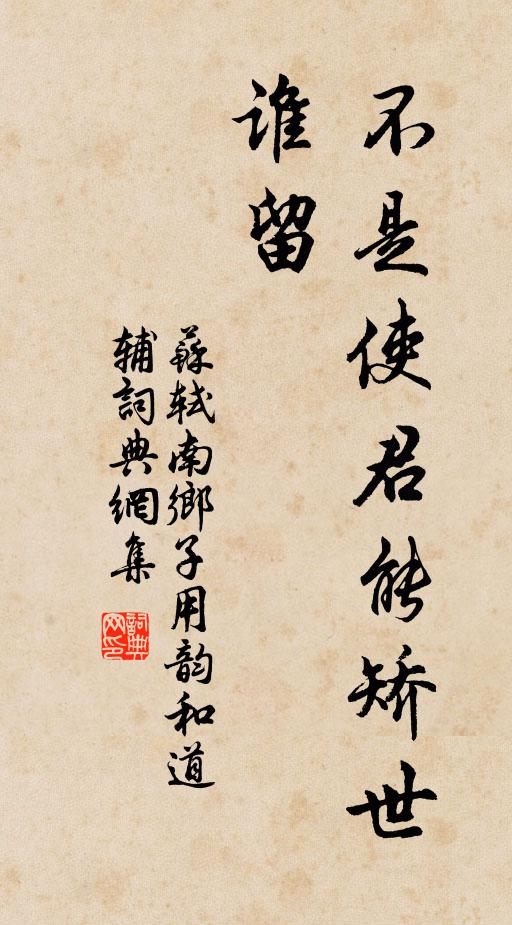 不是使君能矫世
谁留
蘇軾南鄉子用韵和道
辅詞典網集
詞典
网印